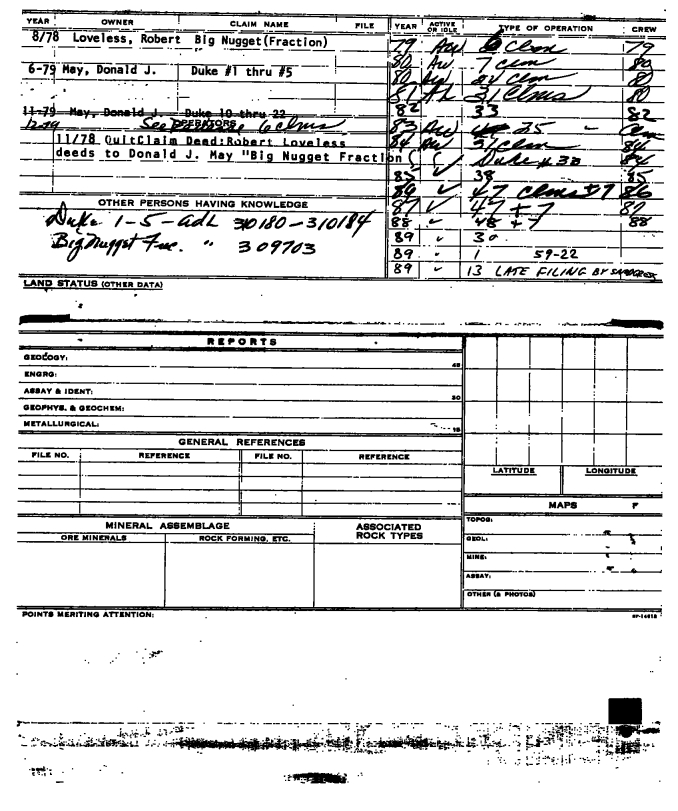 YEAR OWNER CLAIM NAME FILE YEAR ACTIVE OR IDLE TYPE OF OPERATION CREW
8/78 Loveless, Robert Big Nugget(Fraction) 79 6 Clms 79
" 80 7 clm 80
6-79 May, Donald J. Duke #1 thru #5 80 clm 80
81 31 Clms 80
11-79 May, Donald J. Duke 10 thru 22 82 33 82
See 6 clms 83 25 "
OPERATORS
11/78 QuitClaim Deed:Robert Loveless 84 31 clm 84
deeds to Donald J. May "Big Nugget Fraction Duke # 38
85 ✓ 38 85
86 ✓ 47 clms 86
OTHER PERSONS HAVING KNOWLEDGE 87 ✓ 47 + 7 87
Duke 1-5-adL 310180-310184 88 " 48 + 7 88
Big Nugget Frac. " 309703 89 " 30
89 " 1 59-22
89 " 13 LATE FILING BY
LAND STATUS (OTHER DATA)
REPORTS
GEOLOGY:
ENGRG:
ASSAY & IDENT:
GEOPHYS. & GEOCHEM:
METALLURGICAL:
GENERAL REFERENCES
FILE NO. REFERENCE FILE NO. REFERENCE
LATITUDE LONGITUDE
MAPS
MINERAL ASSEMBLAGE ASSOCIATED ROCK TYPES
ORE MINERALS ROCK FORMING, ETC.
TOPOG:
GEOL:
MINE:
ASSAY:
OTHER (& PHOTOS)
POINTS MERITING ATTENTION: